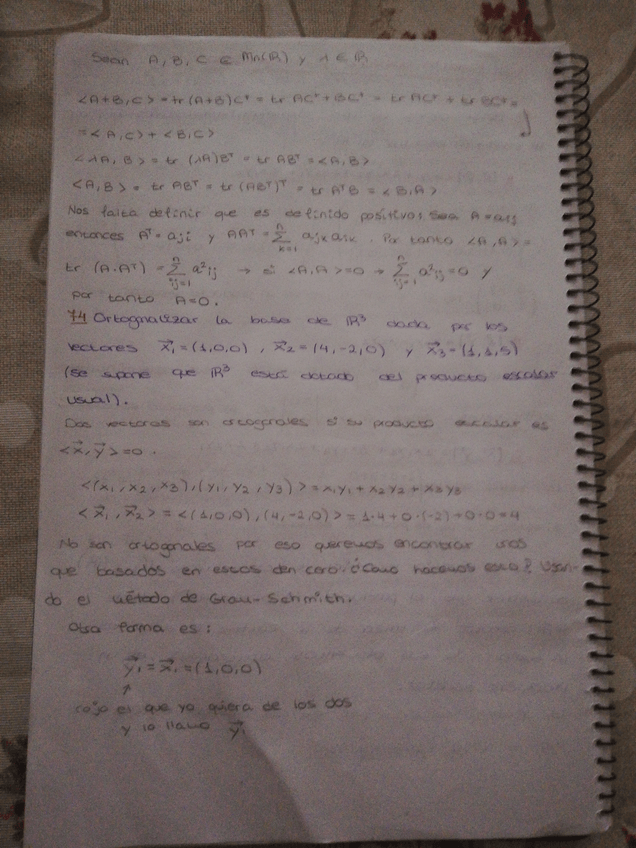 Sean A, B, C ∈ Mn(R) y λ ∈ R
<A+B, C> = tr (A+B)Cᵀ = tr ACᵀ + BCᵀ = tr ACᵀ + tr BCᵀ =
= <A, C> + <B, C>
<λA, B> = tr (λA)Bᵀ = tr ABᵀ = <A, B>
<A, B> = tr ABᵀ = tr (ABᵀ)ᵀ = tr AᵀB = <B, A>
Nos falta definir que es definido positivo, sea A = aij
entonces Aᵀ = aji y AAᵀ = Σⁿₖ₌₁ ajk aik. Por tanto <A, A> =
tr (A·Aᵀ) = Σⁿᵢⱼ₌₁ a²ij → si <A, A> = 0 → Σⁿᵢⱼ₌₁ a²ij = 0 y
por tanto A = 0.
74 Ortogonalizar la base de R³ dada por los
vectores x⃗₁ = (1,0,0), x⃗₂ = (4,-2,0) y x⃗₃ = (1,1,5)
(se supone que R³ está dotado del producto escalar
usual).
Dos vectores son ortogonales si su producto escalar es
<x⃗, y⃗> = 0.
<(x₁, x₂, x₃), (y₁, y₂, y₃)> = x₁y₁ + x₂y₂ + x₃y₃
<x⃗₁, x⃗₂> = <(1,0,0), (4,-2,0)> = 1·4 + 0·(-2) + 0·0 = 4
No son ortogonales por eso queremos encontrar unos
que basados en estos den cero. ¿Cómo hacemos esto? Usan-
do el método de Grau-Schmith.
Otra forma es:
y⃗₁ = x⃗₁ = (1,0,0)
↑
cojo el que yo quiera de los dos
y lo llamo y⃗₁